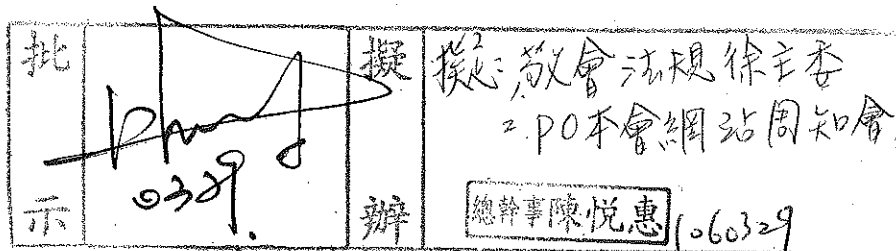 批示
0329.
擬辦
擬:敬會法規徐主委
2.PO本會網站周知會
總幹事陳悅惠 1060329